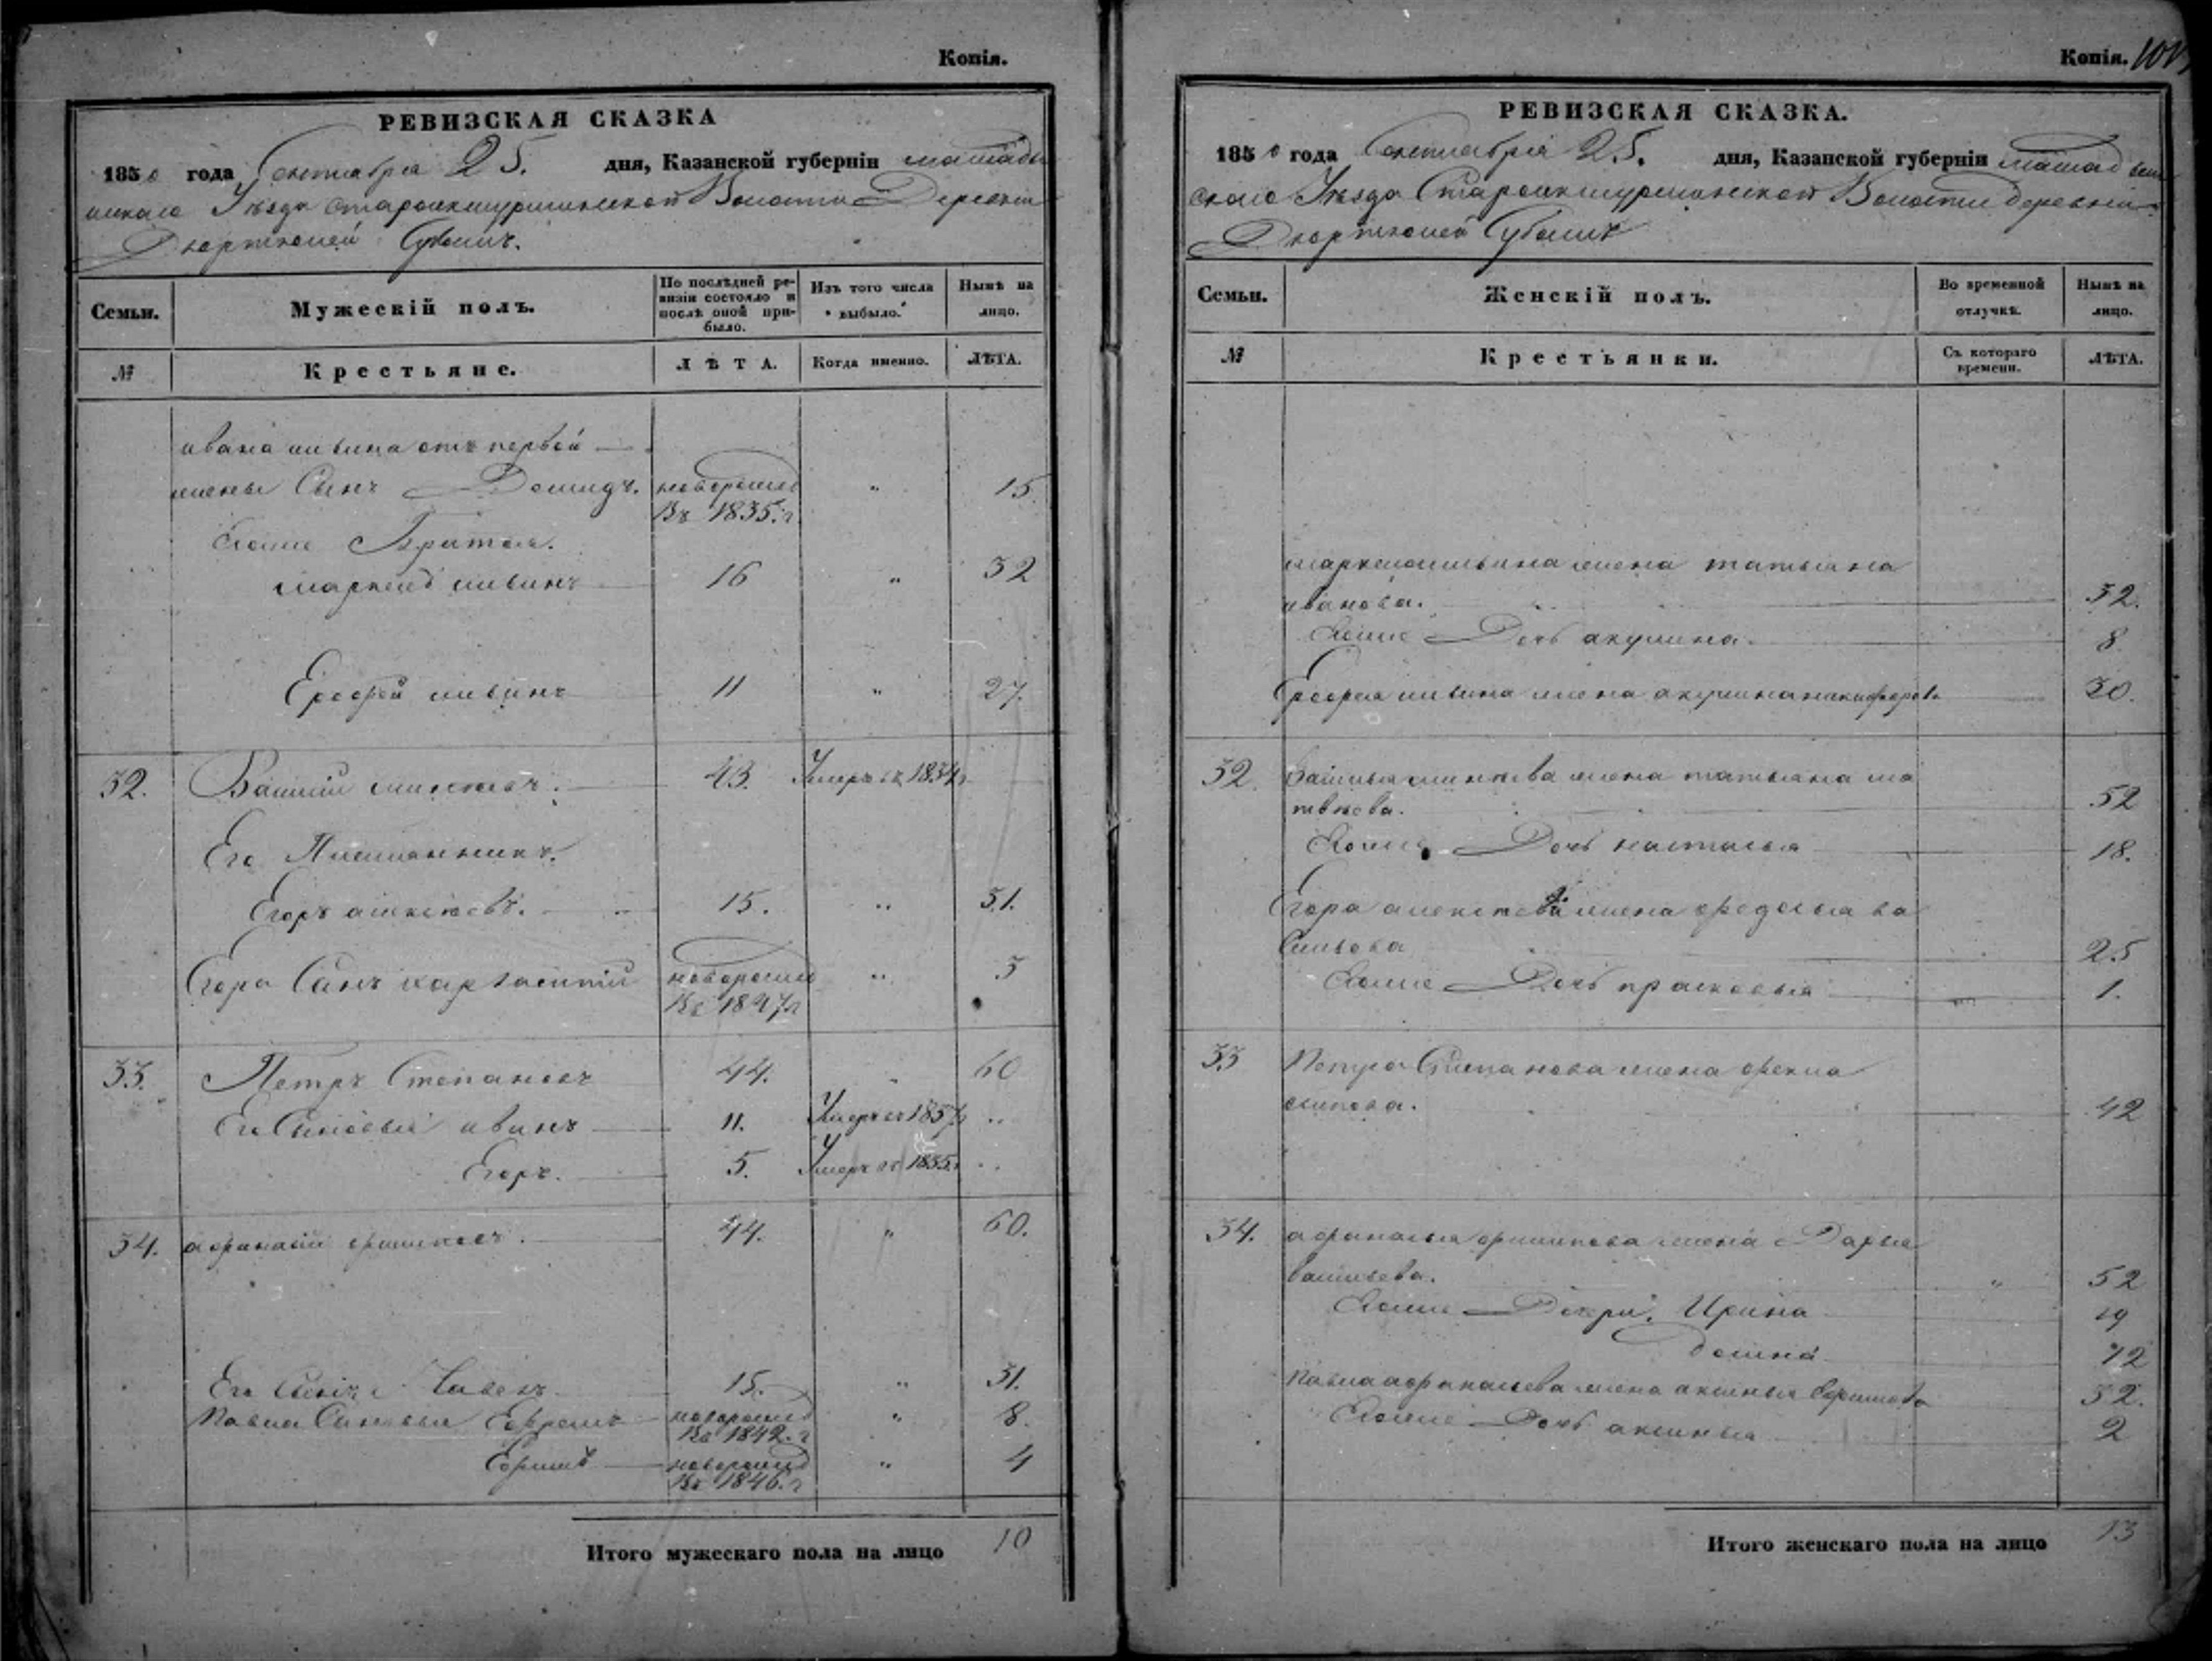 Копія.
РЕВИЗСКАЯ СКАЗКА
1850 года Сентября 25. дня, Казанской губерніи мамады
шскаго Уѣзда Староикшурминской Волости Деревни
Дюртюлей Губаши.
Семьи.
Мужескій полъ.
По послѣдней ре-
визіи состояло и
послѣ оной при-
было.
Изъ того числа
выбыло.
Нынѣ на
лицо.
№
Крестьяне.
ЛѢТА.
Когда именно.
ЛѢТА.
ивана отъ первой
жены Сынъ новорожд " 15
Въ 1835. г.
Братья.
16 " 32
Ерофей 11 " 27.
32. 43. Умеръ въ
Его Племянникъ.
Егоръ 15. " 31.
Егора Сынъ новорожд " 3
Въ 1847 г
33. Петръ Степановъ 44. 60
Его Сыновья иванъ 11. Умеръ въ
Егоръ. 5. Умеръ въ 1835. г
34. афанасій филиповъ. 44. " 60.
Его Сынъ Павелъ 15. " 31.
Павла Сыновья Ефремъ новорожд " 8.
Въ 1842. г
Ефимъ новорожд " 4
Въ 1846. г
Итого мужескаго пола на лицо 10
Копія.
РЕВИЗСКАЯ СКАЗКА.
1850 года Сентября 25. дня, Казанской губерніи мамадыш
скаго Уѣзда Староикшурминской Волости деревни
Дюртюлей Губаши
Семьи.
Женскій полъ.
Во временной
отлучкѣ.
Нынѣ на
лицо.
№
Крестьянки.
Съ котораго
времени.
ЛѢТА.
жена татьяна
иванова. 32.
Дочь акулина. 8
Ерофея жена акулина никифоров 30.
32. жена татьяна ма
твѣева. 52
Дочь настасья 18.
Егора жена федосья ва
сильева 25
Дочь прасковья 1.
33 Петра Степанова жена фекла
осипова. 42
34. афанасья филипова жена Дарья
васильева. " 52
Дочери. Ирина 19
домна 12
Павла афанасьева жена аксинья Ефимова 32.
Дочь аксинья 2
Итого женскаго пола на лицо 13